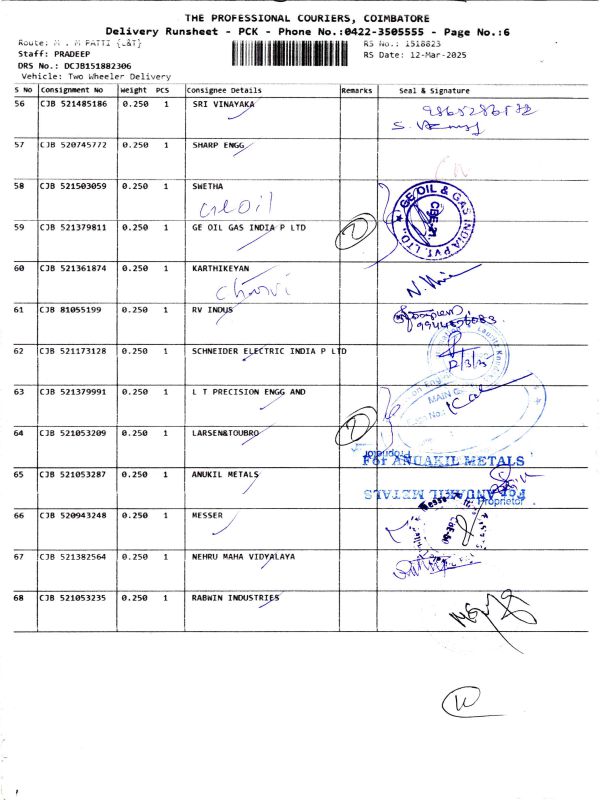 THE PROFESSIONAL COURIERS, COIMBATORE
Delivery Runsheet - PCK - Phone No.:0422-3505555 - Page No.:6
Route: M . M PATTI {L&T}
RS No.: 1518823
Staff: PRADEEP
RS Date: 12-Mar-2025
DRS No.: DCJB151882306
Vehicle: Two Wheeler Delivery
S No Consignment No Weight PCS Consignee Details Remarks Seal & Signature
56 CJB 521485186 0.250 1 SRI VINAYAKA
57 CJB 520745772 0.250 1 SHARP ENGG
58 CJB 521503059 0.250 1 SWETHA
GE OIL & GAS INDIA PVT. LTD.
CBE-21
59 CJB 521379811 0.250 1 GE OIL GAS INDIA P LTD
2
60 CJB 521361874 0.250 1 KARTHIKEYAN
61 CJB 81055199 0.250 1 RV INDUS
62 CJB 521173128 0.250 1 SCHNEIDER ELECTRIC INDIA P LTD
12/3/25
63 CJB 521379991 0.250 1 L T PRECISION ENGG AND
MAIN
64 CJB 521053209 0.250 1 LARSEN&TOUBRO
2
Proprietor
For ANUAKIL METALS
65 CJB 521053287 0.250 1 ANUKIL METALS
For ANUAKIL METALS
Proprietor
66 CJB 520943248 0.250 1 MESSER
67 CJB 521382564 0.250 1 NEHRU MAHA VIDYALAYA
68 CJB 521053235 0.250 1 RABWIN INDUSTRIES